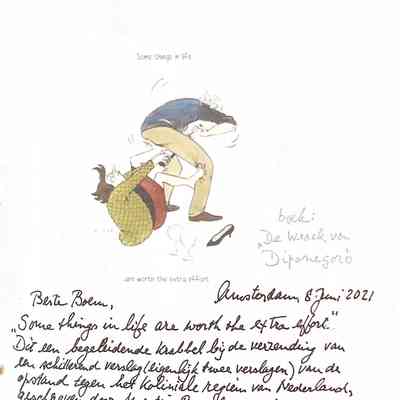 Some things in life
boek:
"De Wraak van
Diponegoro"
are worth the extra effort
Amsterdam, 8 juni 2021
Beste Boem,
"Some things in life are worth the extra effort."
Dit een begeleidende krabbel bij de verzending van
een schillerend verslag (eigenlijk twee verslagen) van de
opstand tegen het koloniale regiem van Nederland,